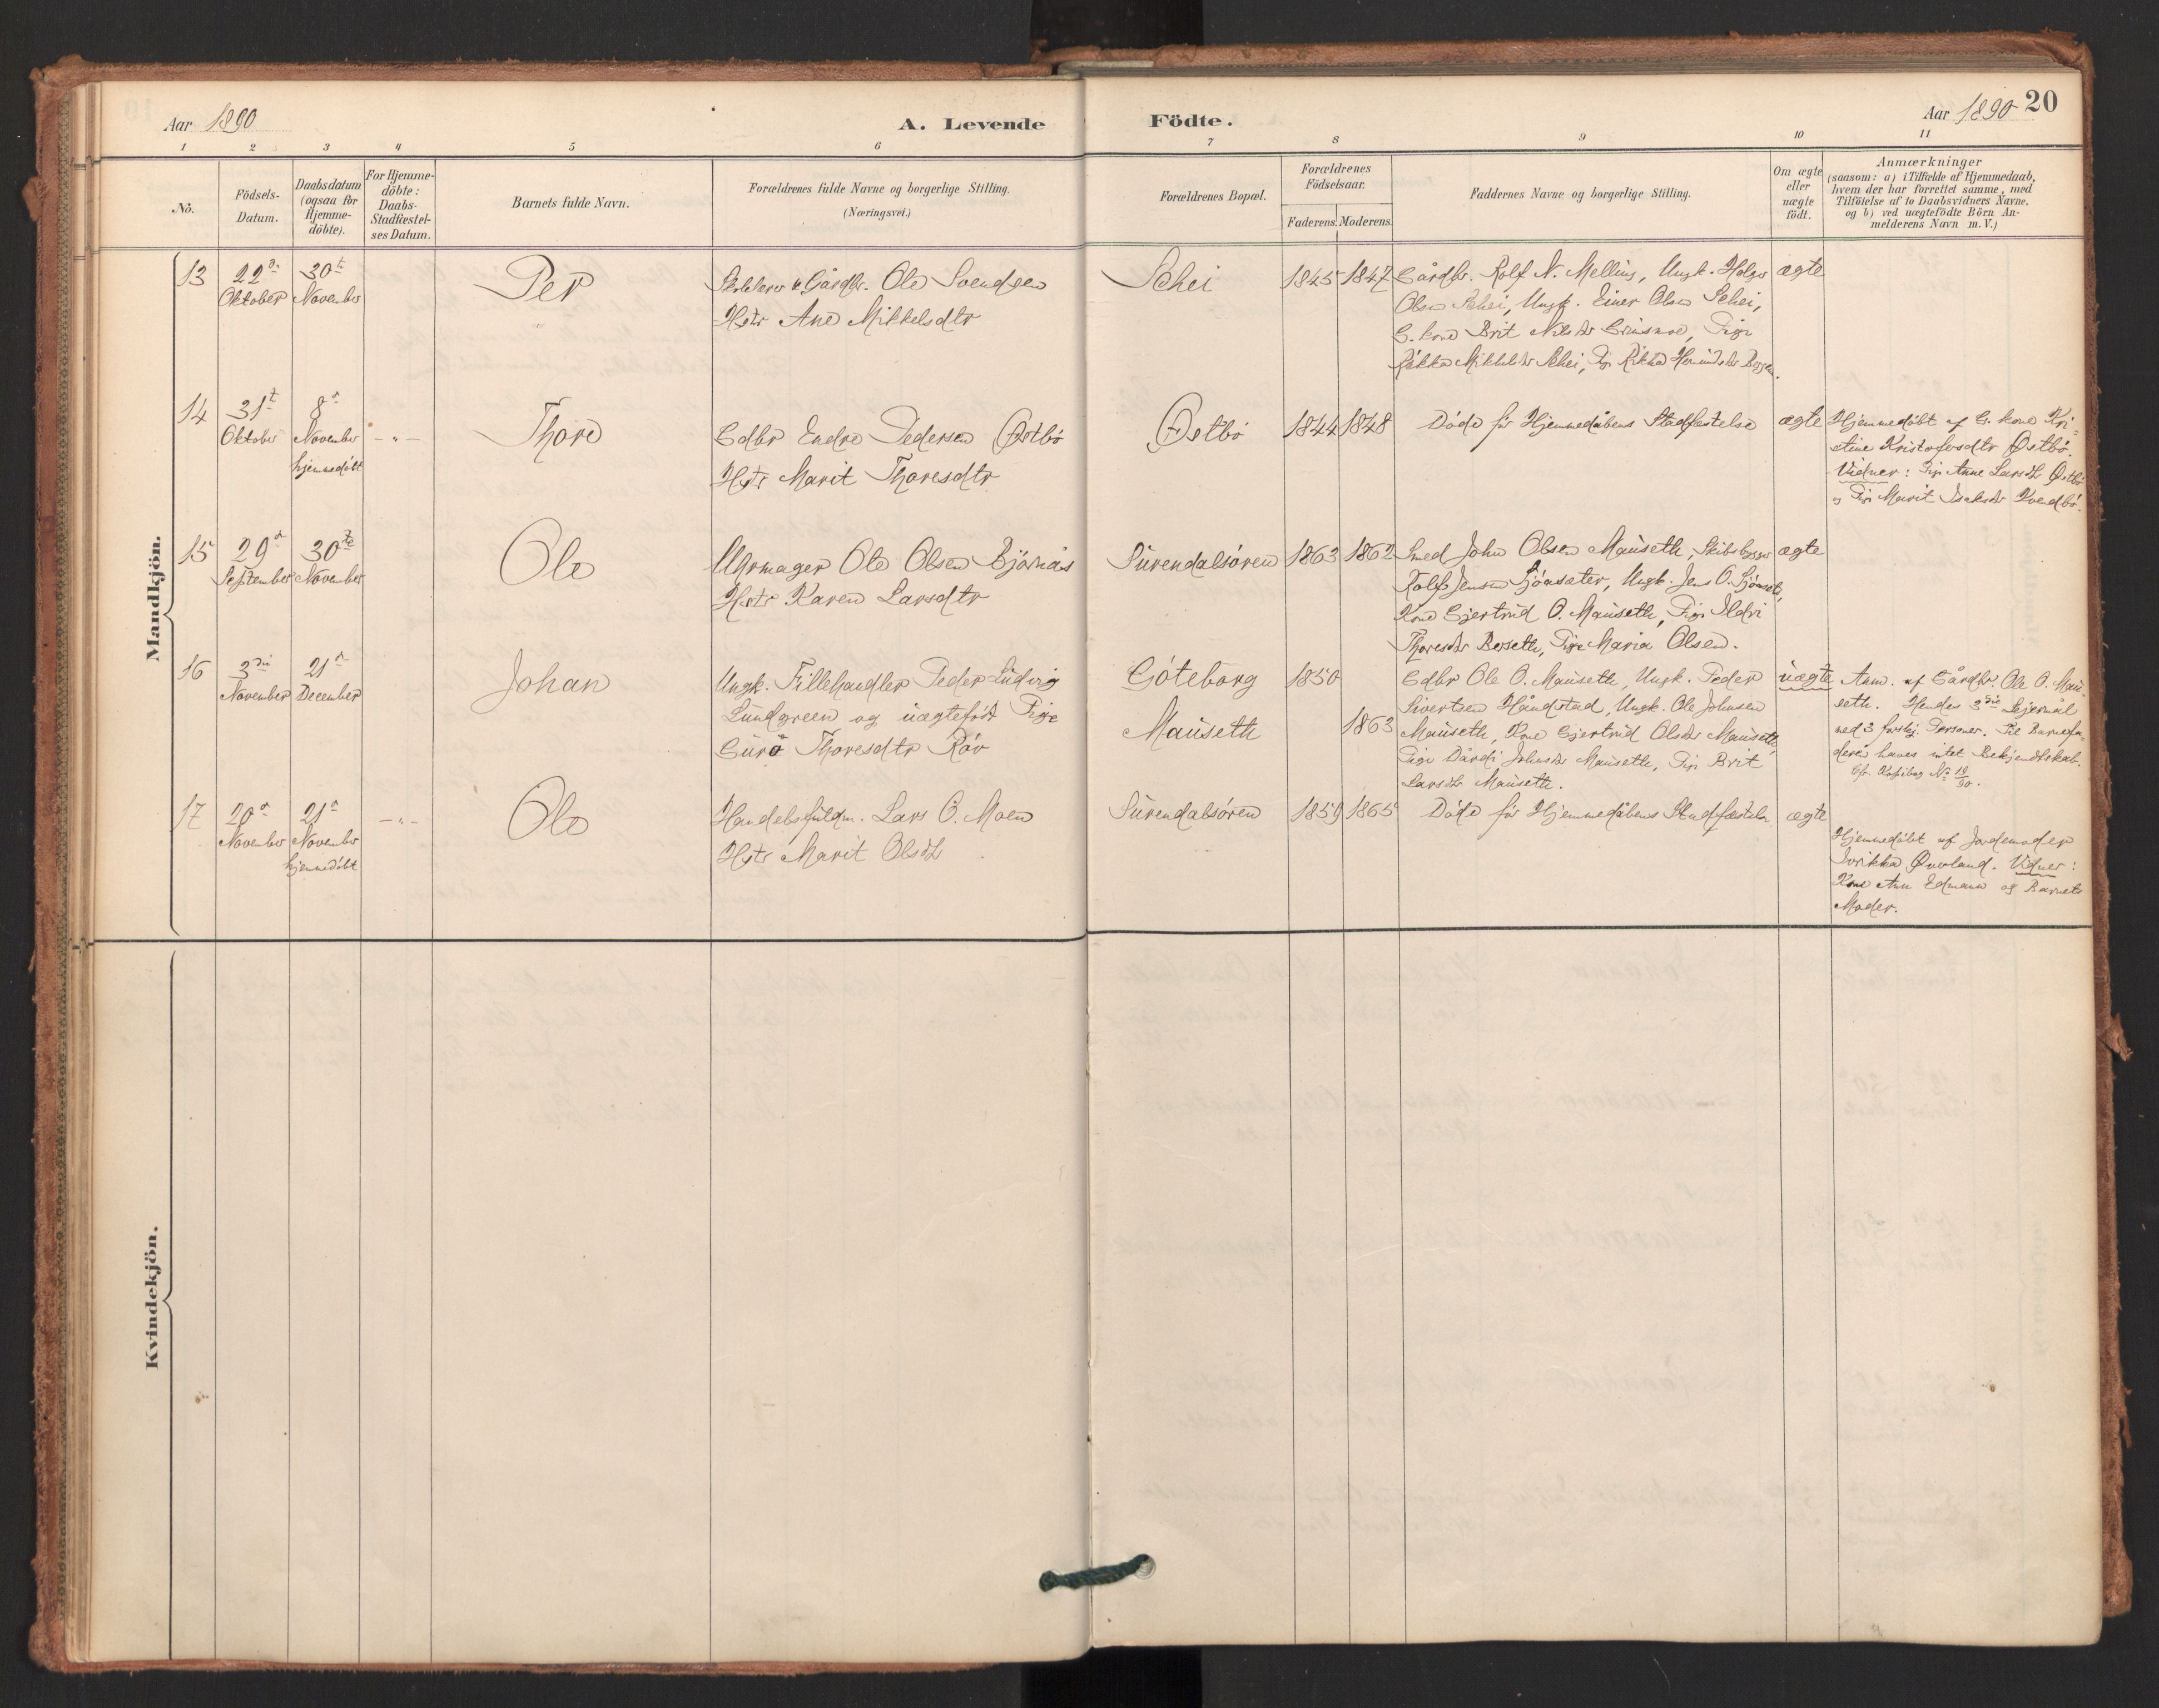 Aar 1890
A. Levende
Födte.
Aar 1890 20
1 2 3 4 5 6 7 8 9 10 11
No.
Födsels-
Datum.
Daabsdatum
(ogsaa for
Hjemme-
döbte).
For Hjemme-
döbte:
Daabs-
Stadfæstel-
ses Datum.
Barnets fulde Navn.
Forældrenes fulde Navne og borgerlige Stilling.
(Næringsvei.)
Forældrenes Bopæl.
Forældrenes
Födselsaar.
Faderens. Moderens.
Faddernes Navne og borgerlige Stilling.
Om ægte
eller
uægte
födt.
Anmærkninger
(saasom: a) i Tilfælde af Hjemmedaab,
hvem der har forrettet samme, med
Tilföielse af to Daabsvidners Navne,
og b) ved uægtefödte Börn An-
melderens Navn m. V.)
Mandkjön.
13
22d
Oktober
30t
November
Per
Gårdbr. Ole Svendsen
Hstr Ane Mikkelsdtr
Schei
1845 1847
Gårdbr. Rolf N. Melling, Ungk. Holger
Olsen Schei, Ungk. Einer Olsen Schei,
G. kone Brit Nilsdtr, Pige
Rikka Mikkelsdtr Schei, Pg. Rikka
ægte
14
31t
Oktober
8d
November
hjemmedöbt
- " -
Thore
Gdbr Endre Pedersen Østbö
Hstr Marit Thoresdtr
Østbö
1844 1848
Döde för Hjemmedåbens Stadfæstelse
ægte
Hjemmedöbt af G. kone Kri-
stine Kristofersdtr Østbö.
Vidner: Pige Anne Larsdtr Østbö
og Pige Marit Isaksdtr Kvendbö.
15
29d
September
30te
November
Ole
Uhrmager Ole Olsen Björnås
Hstr Karen Larsdtr
Surendalsören
1863 1862
Smed John Olsen Mauseth, Skibsbygger
Rolf Jensen, Ungk. Jens O.
Kone Gjertrud O. Mauseth, Pige Ildri
Thoresdtr Berseth, Pige Maria Olsen.
ægte
16
3die
November
21d
December
Johan
Ungk. Fillehandler Peder Ludvig
Lundgreen og uægteföd Pige
Guro Thoresdtr Röv
Göteborg
Mauseth
1850
1863
Gdbr Ole O. Mauseth, Ungk. Peder
Sivertsen Håndstad, Ungk. Ole Johnsen
Mauseth, Kone Gjertrud Olsdtr Mauseth,
Pige Dårdi Johnsdtr Mauseth, Pige Brit
Larsdtr Mauseth.
uægte
Anm. af Gårdbr Ole O. Mau-
seth. Hendes 3die Leiermål
med 3 forskj. Personer. Til Barnefa-
deren haves intet Bekjendtskab.
Cfr. Kopibog No 10/90.
17
20d
November
21d
November
hjemmedöbt
- " -
Ole
Handelsfuldm. Lars O. Moen
Hstr Marit Olsdtr
Surendalsören
1859 1865
Döde för Hjemmedåbens Stadfæstelse
ægte
Hjemmedöbt af Jordemoder
Øverland. Vidner:
Kone Ane Edmann og Barnets
Moder.
Kvindekjön.